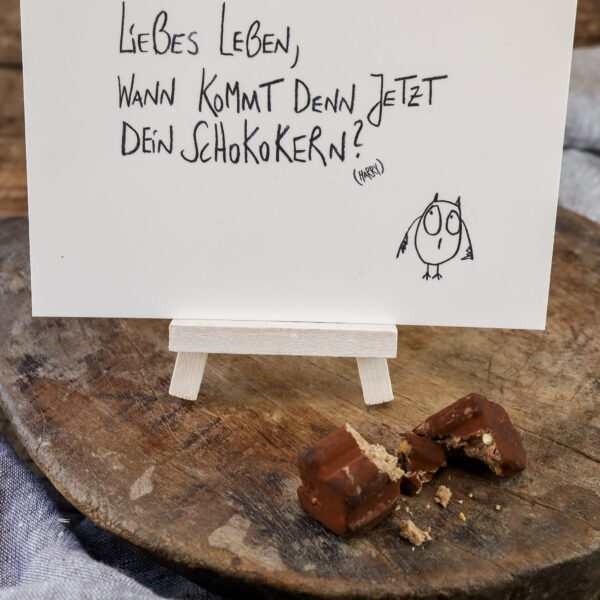 LIEBES LEBEN,
WANN KOMMT DENN JETZT
DEIN SCHOKOKERN?
(HARRY)